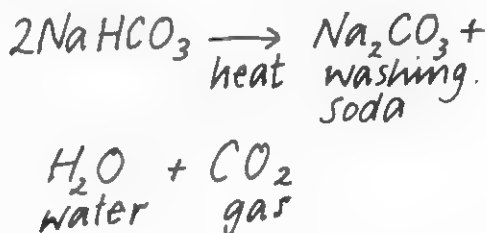 2NaHCO₃ ⟶ Na₂CO₃ +
heat washing.
soda
H₂O + CO₂
water gas